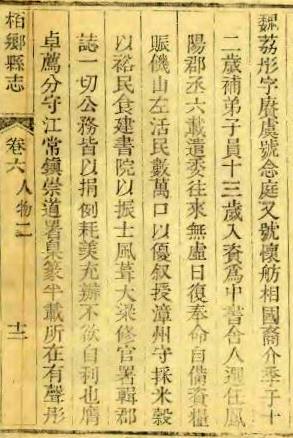 魏荔彤字賡虞號念庭又號懷舫相國裔介季子十
二歲補弟子員十三歲入資爲中書舍人選任鳳
陽郡丞六載遣委往來無虛日復奉命自備資糧
賑饑山左活民數萬口以優叙授漳州守採米穀
以裕民食建書院以振士風葺大梁修官署輯郡
誌一切公務皆以捐例耗美充辦不欲自利也膺
卓薦分守江常鎮崇道署臬篆半載所在有聲彤
栢鄉縣志
卷六
人物二
十二